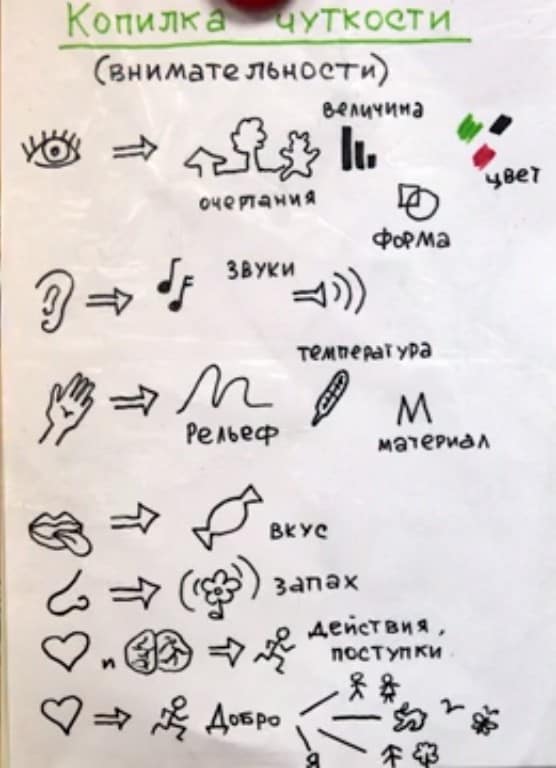 Копилка чуткости
(внимательности)
величина
цвет
очертания
форма
звуки
температура
Рельеф
М
материал
вкус
запах
и
действия,
поступки
Добро
Я